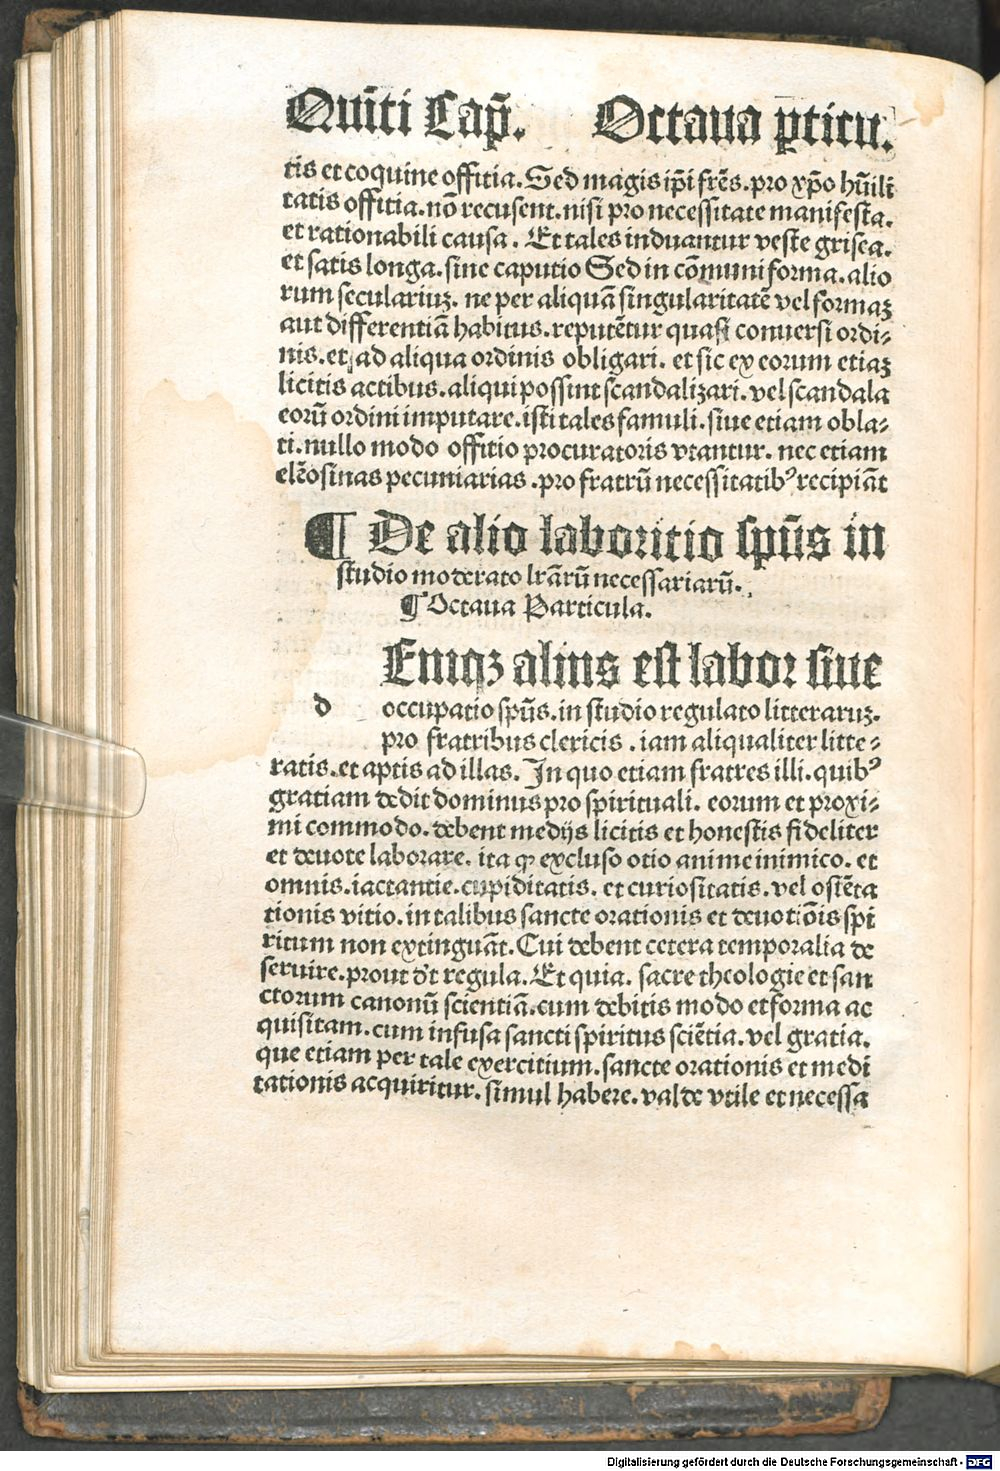 Quīti Cap̄. Octaua ꝑticu.
tis et coquine offitia. Sed magis ip̄i frēs. pro xp̄o hūili
tatis offitia. nō recusent. nisi pro necessitate manifesta.
et rationabili causa. Et tales induantur veste grisea.
et satis longa. sine caputio Sed in cōmuni forma. alio
rum seculariuꝫ. ne per aliquā singularitatē vel formaꝫ
aut differentiā habitus. reputētur quasi conuersi ordi⸗
nis. et ad aliqua ordinis obligari. et sic ex eorum etiaꝫ
licitis actibus. aliqui possint scandalizari. vel scandala
eorū ordini imputare. isti tales famuli. siue etiam obla⸗
ti. nullo modo offitio procuratoris vtantur. nec etiam
elēosinas pecuniarias. pro fratrū necessitatibꝰ recipiāt
¶ De alio laboritio spūs in
studio moderato lrārū necessariarū.
¶ Octaua Particula.
Eniqꝫ alius est labor siue
d occupatio spūs. in studio regulato litteraruꝫ.
pro fratribus clericis. iam aliqualiter litte⸗
ratis. et aptis ad illas. In quo etiam fratres illi. quibꝰ
gratiam dedit dominus pro spirituali. eorum et proxi⸗
mi commodo. debent medijs licitis et honestis fideliter
et deuote laborare. ita ꝙ excluso otio anime inimico. et
omnis. iactantie. cupiditatis. et curiositatis. vel ostēta
tionis vitio. in talibus sancte orationis et deuotiōis spi
ritum non extinguāt. Cui debent cetera temporalia de
seruire. prout dt̄ regula. Et quia. sacre theologie et san
ctorum canonū scientiā. cum debitis modo et forma ac
quisitam. cum infusa sancti spiritus sciētia. vel gratia.
que etiam per tale exercitium. sancte orationis et medi
tationis acquiritur. simul habere. valde vtile et necessa
Digitalisierung gefördert durch die Deutsche Forschungsgemeinschaft - DFG